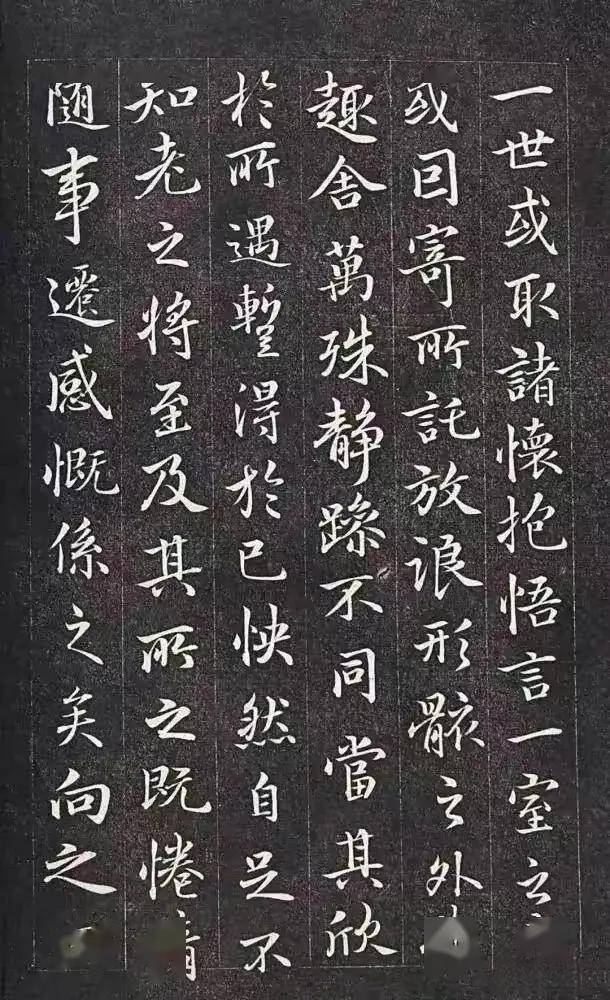 一世或取諸懷抱悟言一室之
或因寄所託放浪形骸之外
趣舍萬殊静躁不同當其欣
於所遇暫得於己怏然自足不
知老之將至及其所之既惓
隨事遷感慨係之矣向之